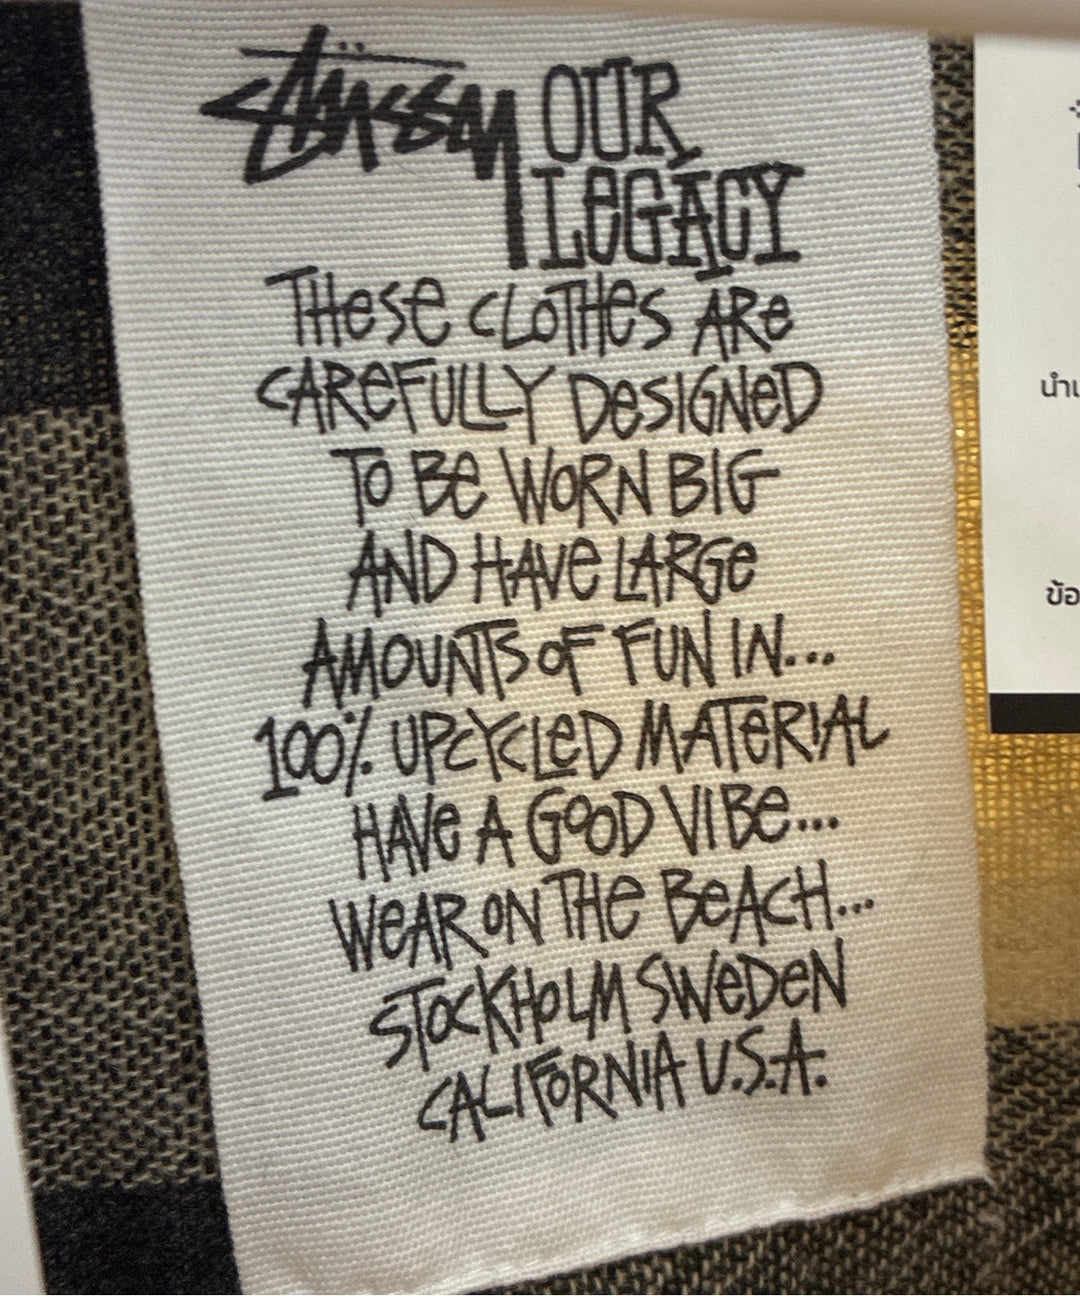 Stüssy OUR
LEGACY
THESE CLOTHES ARE
CAREFULLY DESIGNED
TO BE WORN BIG
AND HAVE LARGE
AMOUNTS OF FUN IN...
100% UPCYCLED MATERIAL
HAVE A GOOD VIBE...
WEAR ON THE BEACH...
STOCKHOLM SWEDEN
CALIFORNIA U.S.A.